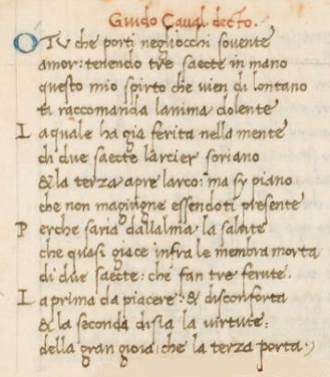 Guido Caval decto.
O Tu che porti negliocchi sovente
amor: tenendo tre saecte in mano
questo mio spirto che vien di lontano
ti raccomanda lanima dolente
L aquale ha gia ferita nella mente
di due saecte larcier soriano
& la terza apre larco: ma sy piano
che non magiugne essendoti presente
P erche saria dallalma la salute
che quasi giace infra le membra morta
di due saecte: che fan tre ferute.
L a prima da piacere: & disconforta
& la seconda disia la virtute:
della gran gioia: che la terza porta:)